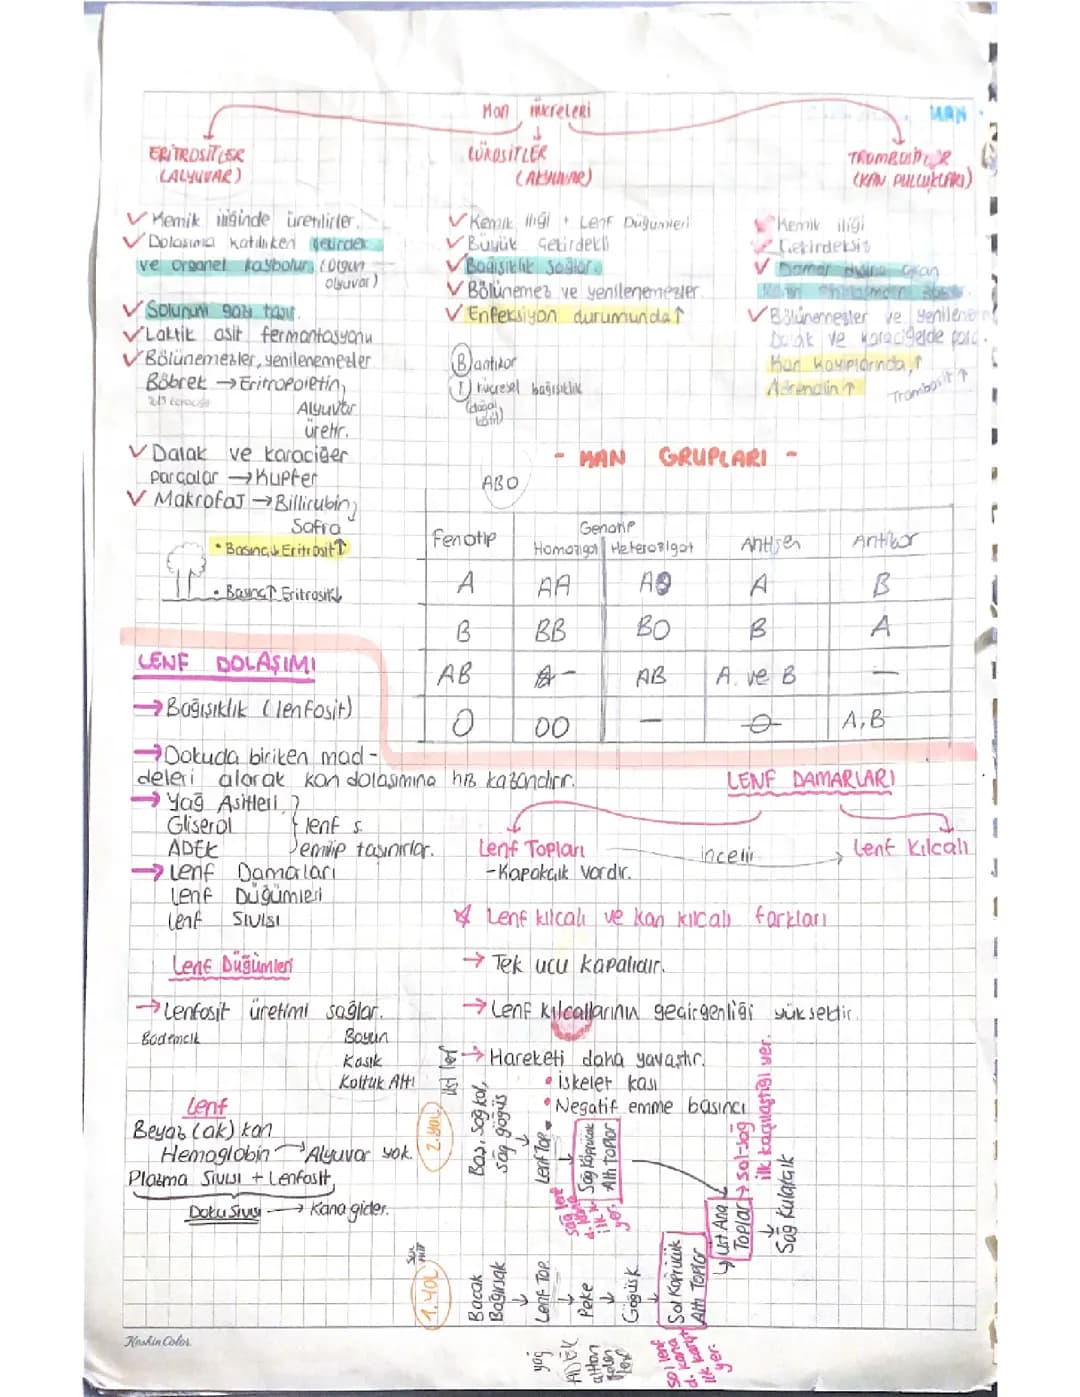 Kan Hücreleri
KAN
ERİTROSİTLER
(ALYUVAR)
✓ Kemik iliğinde üretilirler.
✓ Dolaşıma katılırken çekirdek
ve organel kaybolur. (olgun
alyuvar)
✓ Solunum gazı taşır.
✓ Laktik asit fermantasyonu
✓ Bölünemezler, yenilenemezler
Böbrek → Eritropoietin,
Alyuvar
üretir.
✓ Dalak ve karaciğer
parçalar → Kupfer
✓ Makrofaj → Billirubin
Safra
• Basınç↓ Eritrosit↑
• Basınç↑ Eritrosit↓
LÖKOSİTLER
(AKYUVAR)
✓ Kemik iliği + Lenf Düğümleri
✓ Büyük Çekirdekli
✓ Bağışıklık Sağlar.
✓ Bölünemez ve yenilenemezler.
✓ Enfeksiyon durumunda ↑
(B) antikor
(T) hücresel bağışıklık
TROMBOSİTLER
(KAN PULCUKLARI)
Kemik iliği
Çekirdeksiz
✓ Damar dışına çıkan
✓ Bölünemezler ve yenilenem
Dalak ve karaciğerde parç.
Kan kayıplarında ↑
Adrenalin ↑
Trombosit ↑
- KAN GRUPLARI -
ABO
Fenotip Genotip Antijen Antikor
Homozigot Heterozigot
A AA AO A B
B BB BO B A
AB - AB A ve B -
O OO - A, B
LENF DOLAŞIMI
→ Bağışıklık (lenfosit)
→ Dokuda biriken mad-
deleri alarak kan dolaşımına kazandırır.
→ Yağ Asitleri
Gliserol } lenf s.
ADEK emilip taşınırlar.
→ Lenf Damarları
Lenf Düğümleri
Lenf Sıvısı
Lenf Düğümleri
→ Lenfosit üretimi sağlar.
Bademcik Boyun
Kasık
Koltuk Altı
Lenf
Beyaz (ak) kan
Hemoglobin → Alyuvar yok.
Plazma Sıvısı + Lenfosit
Doku Sıvısı → Kana gider.
LENF DAMARLARI
Lenf Topları incelir → Lenf Kılcalı
- Kapakçık vardır.
Lenf kılcalı ve kan kılcalı farkları
→ Tek ucu kapalıdır.
→ Lenf kılcallarının geçirgenliği yüksektir.
→ Hareketi daha yavaştır.
• iskelet kası
• Negatif emme basıncı
2.YOL
Baş, sağ kol,
sağ göğüs
↓
Lenf Top.
↓
Sağ Köprücük
Altı Toplar
sağ lenf
d. kana
ilk k.
yer.
→ Üst Ana
Toplar → Sol-sağ
ilk karşılaştığı yer.
↓
Sağ Kulakçık
1.YOL
Bacak
Bağırsak
↓
Lenf Top.
↓
Peke
↓
Göğüs K
↓
Sol Köprücük
Altı Toplar
yağ
ADEK
sol lenf
d. kana
ilk karıştı
yer.
Keskin Color